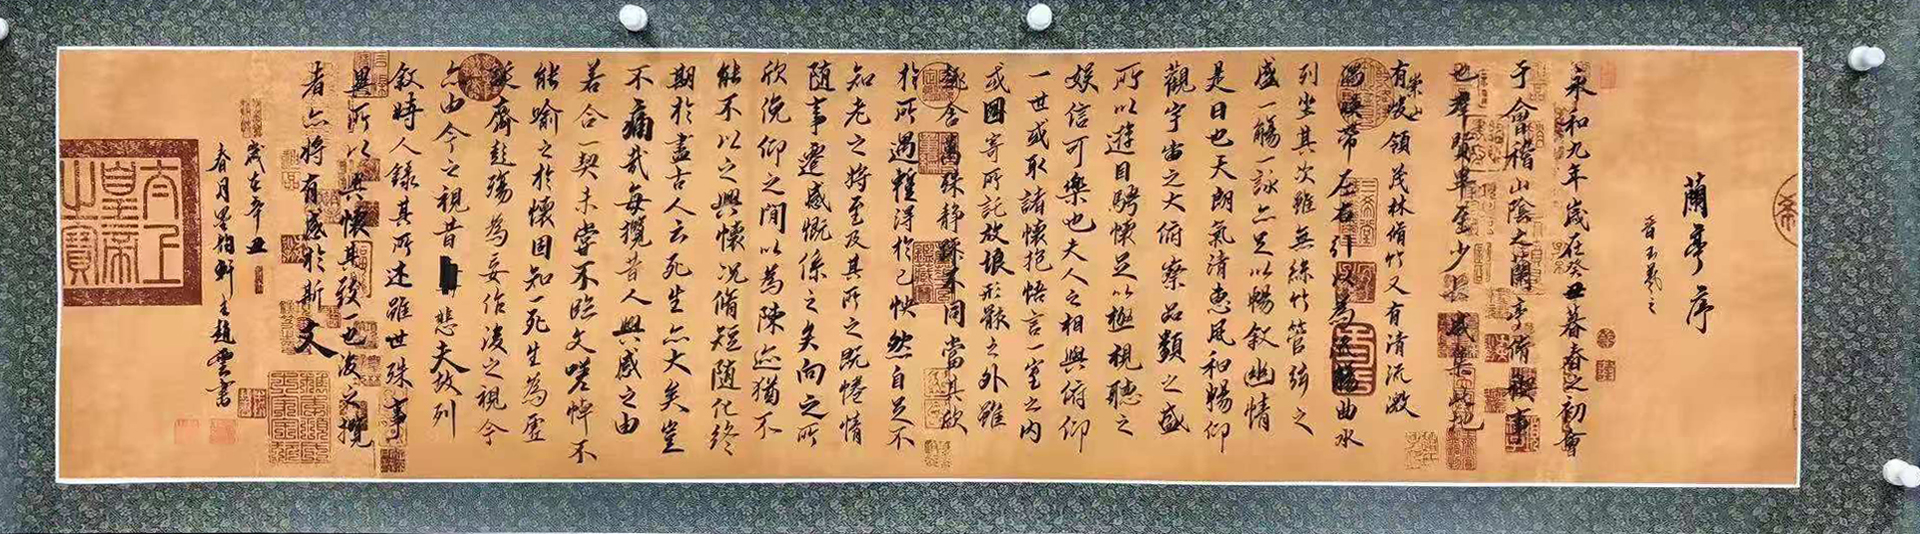 蘭亭序
晋王羲之
永和九年歲在癸丑暮春之初會
于會稽山陰之蘭亭脩禊事
也羣賢畢至少長咸集此地
有崇山峻領茂林脩竹又有清流激
湍暎帶左右引以為流觴曲水
列坐其次雖無絲竹管弦之
盛一觴一詠亦足以暢叙幽情
是日也天朗氣清惠風和暢仰
觀宇宙之大俯察品類之盛
所以遊目騁懷足以極視聽之
娛信可樂也夫人之相與俯仰
一世或取諸懷抱悟言一室之內
或因寄所託放浪形骸之外雖
趣舍萬殊静躁不同當其欣
於所遇蹔得於己怏然自足不
知老之將至及其所之既惓情
隨事遷感慨係之矣向之所
欣俛仰之閒以為陳迹猶不
能不以之興懷况脩短隨化終
期於盡古人云死生亦大矣豈
不痛哉每攬昔人興感之由
若合一契未嘗不臨文嗟悼不
能喻之於懷固知一死生為虛
誕齊彭殤為妄作後之視今
亦由今之視昔悲夫故列
叙時人錄其所述雖世殊事
異所以興懷其致一也後之攬
者亦將有感於斯文
歲在辛丑
春月墨韵軒主趙雲書
太上皇帝之寶